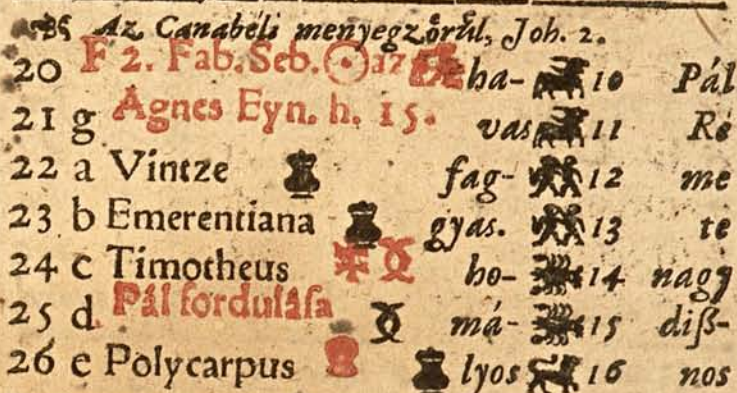 Az Canabéli menyegzőrűl, Joh. 2.
20 F 2. Fab. Seb. ☉ 17 ha- 10 Pál
21 g Agnes Eyn. h. 15. vas 11 Re
22 a Vintze fag- 12 me
23 b Emerentiana gyas. 13 te
24 c Timotheus ho- 14 nagy
25 d Pál fordulása má- 15 diß-
26 e Polycarpus lyos 16 nos